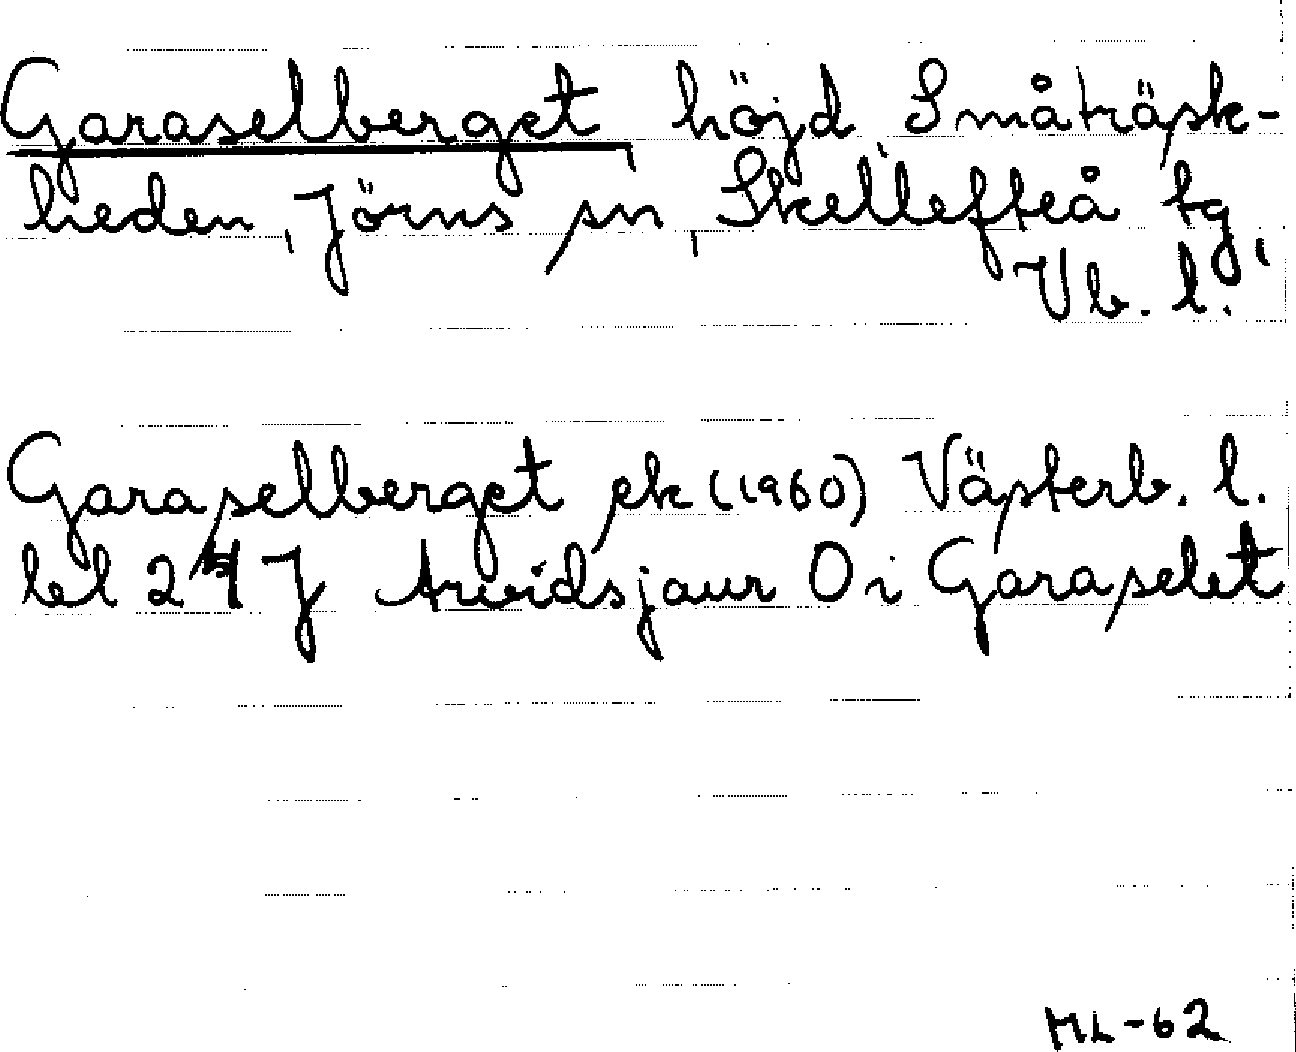 Garaselberget, höjd, Småträsk-
heden, Jörns sn, Skellefteå tg,
Vb. l.
Garaselberget ek (1960) Västerb. l.
bl 24 J Arvidsjaur O i Garaselet
ML-62